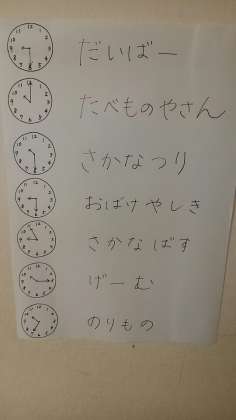 だいばー
たべものやさん
さかなつり
おばけやしき
さかなばす
げーむ
のりもの